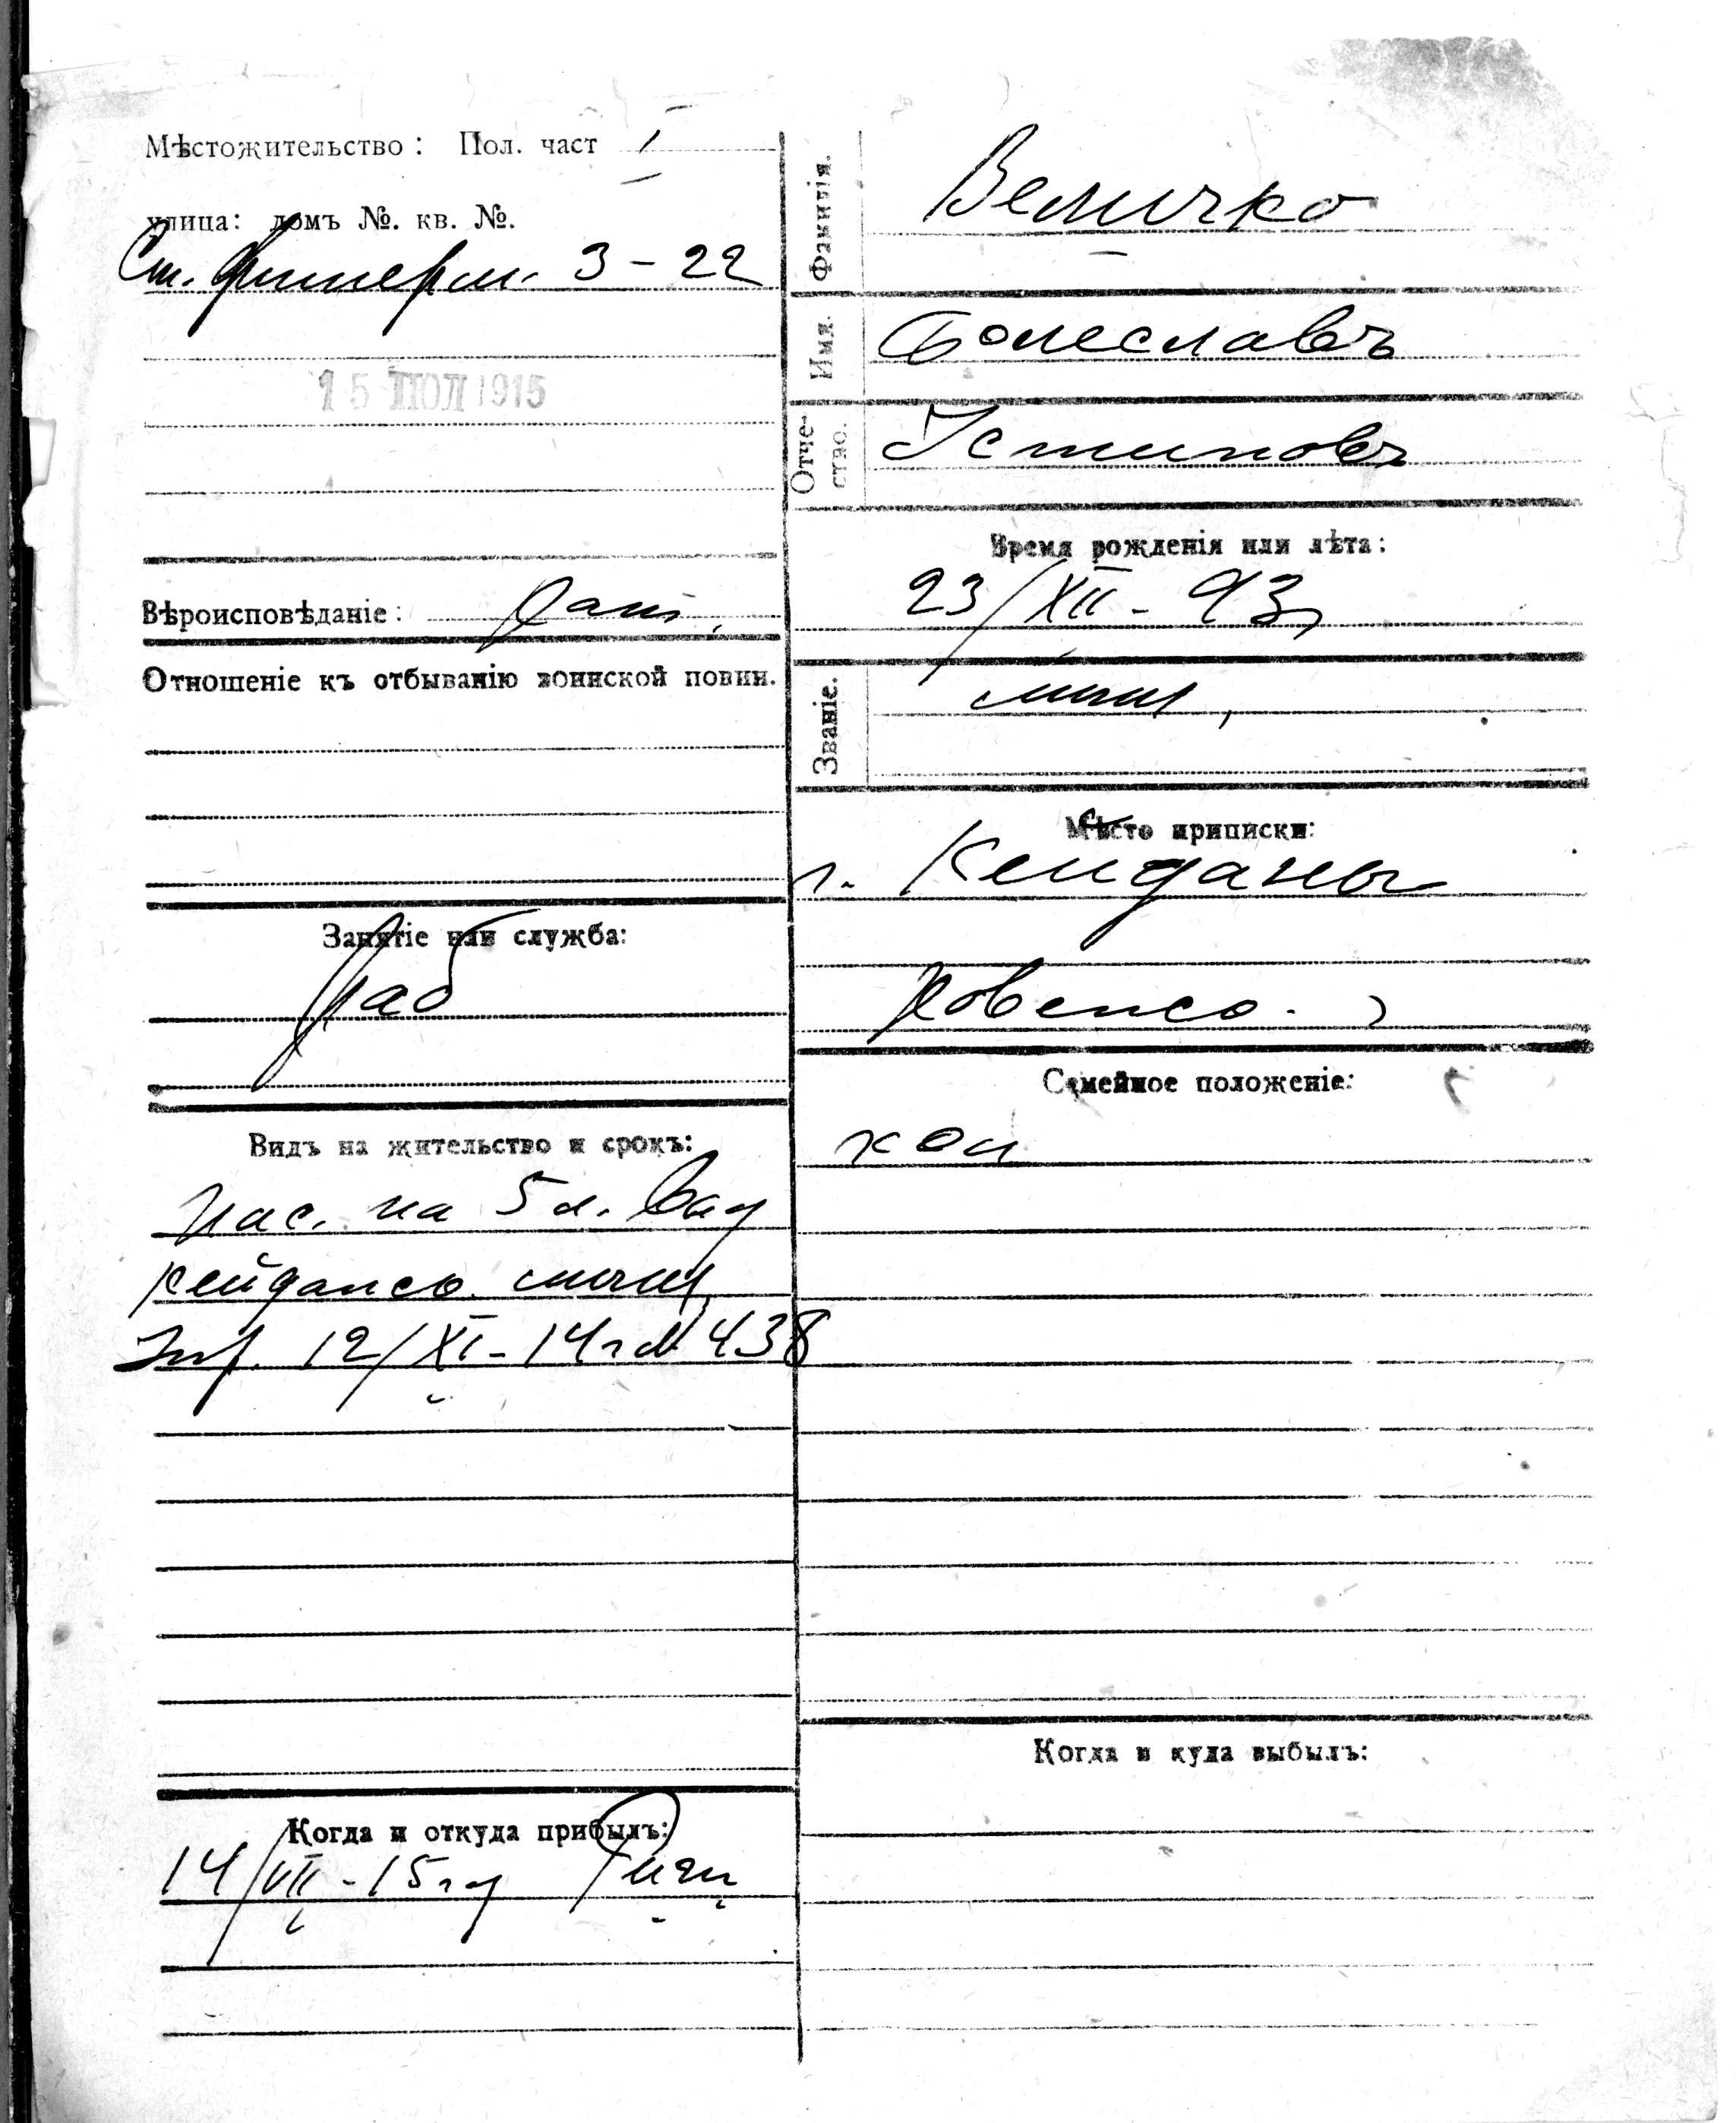 Мѣстожительство: Пол. част I
улица: домъ №. кв. №.
3 – 22
15 ІЮЛ 1915
Вѣроисповѣданіе:
Отношеніе къ отбыванію воинской повин.
Занятіе или служба:
Раб
Видъ на жительство и срокъ:
пас. на 5 л. выд
Кейданск. мѣщ.
Упр. 12/XI – 14 г № 438
Когда и откуда прибылъ:
14/VII – 15 г Риги
Фамилія.
Величко
Имя.
Болеславъ
Отчество.
Устиновъ
Время рожденія или лѣта:
23/XII – 93 г
Званіе.
мѣщ.
Мѣсто приписки:
г. Кейданы
Ковенск. г
Семейное положеніе:
хол
Когда и куда выбылъ: